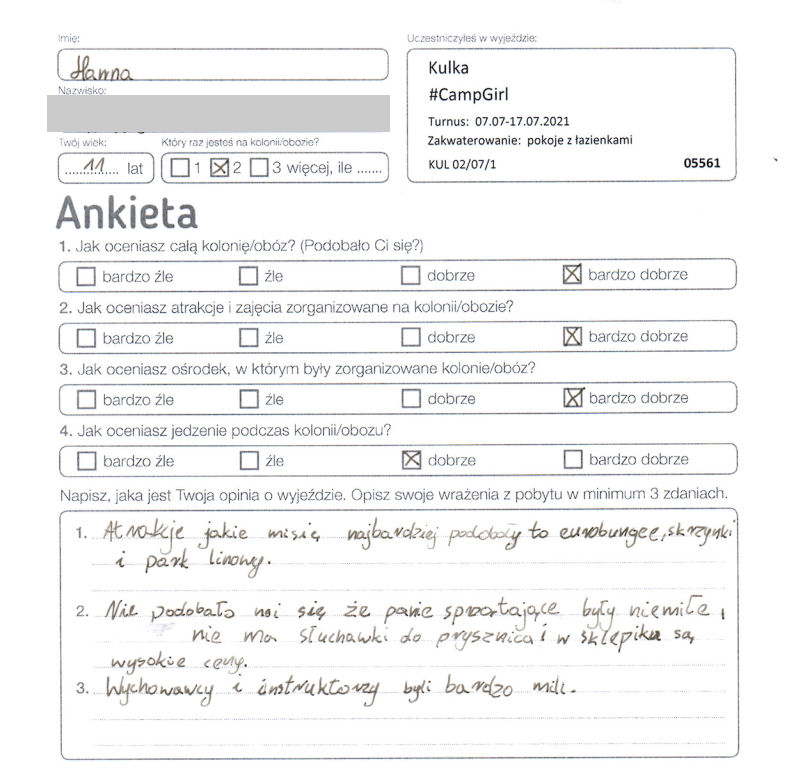 Imię:
Hanna
Nazwisko:
Twój wiek:
11 lat
Który raz jesteś na kolonii/obozie?
1 2 3 więcej, ile .......
Uczestniczyłeś w wyjeździe:
Kulka
#CampGirl
Turnus: 07.07-17.07.2021
Zakwaterowanie: pokoje z łazienkami
KUL 02/07/1 05561
Ankieta
1. Jak oceniasz całą kolonię/obóz? (Podobało Ci się?)
bardzo źle źle dobrze bardzo dobrze
2. Jak oceniasz atrakcje i zajęcia zorganizowane na kolonii/obozie?
bardzo źle źle dobrze bardzo dobrze
3. Jak oceniasz ośrodek, w którym były zorganizowane kolonie/obóz?
bardzo źle źle dobrze bardzo dobrze
4. Jak oceniasz jedzenie podczas kolonii/obozu?
bardzo źle źle dobrze bardzo dobrze
Napisz, jaka jest Twoja opinia o wyjeździe. Opisz swoje wrażenia z pobytu w minimum 3 zdaniach.
1. Atrakcje jakie misię najbardziej podobały to eurobungee, skrzynki
i park linowy.
2. Nie podobało mi się że panie sprzątające były niemiłe,
nie ma słuchawki do prysznica i w sklepiku są
wysokie ceny.
3. Wychowawcy i instruktorzy byli bardzo mili.